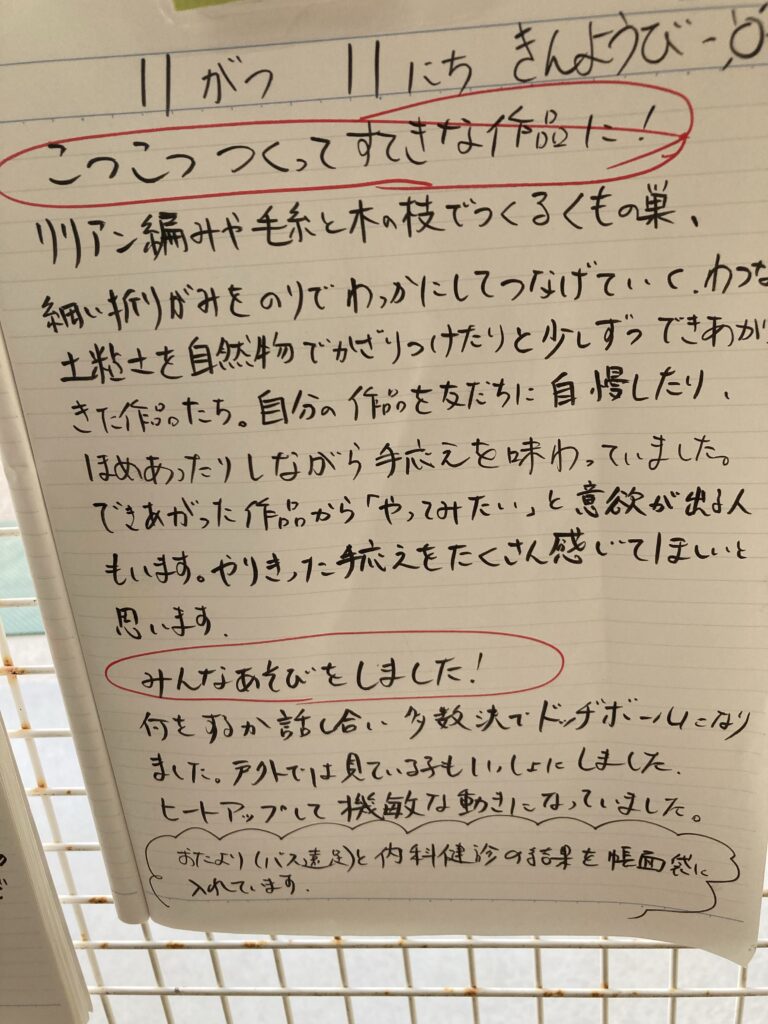 11がつ 11にち きんようび
こつこつ つくって すてきな作品に!
リリアン編みや毛糸と木の枝でつくるくもの巣、
細い折りがみをのりでわっかにしてつなげていく、わつな
土粘土を自然物でかざりつけたりと少しずつできあが
きた作品たち。自分の作品を友だちに自慢したり、
ほめあったりしながら手応えを味わっていました。
できあがった作品から「やってみたい」と意欲が出る人
もいます。やりきった手応えをたくさん感じてほしいと
思います.
みんなあそびをしました!
何をするか話し合い多数決でドッヂボールになり
ました。では見ている子もいっしょにしました.
ヒートアップして機敏な動きになっていました。
おたより(バス遠足)と内科健診の結果を帳面袋に
入れています.